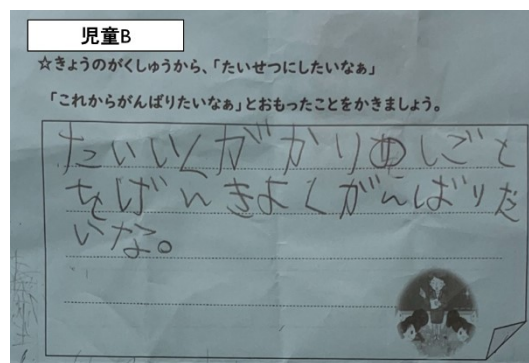 児童B
☆きょうのがくしゅうから、「たいせつにしたいなぁ」
「これからがんばりたいなぁ」とおもったことをかきましょう。
たいいくがかりのしごと
をげんきよくがんばりた
いな。